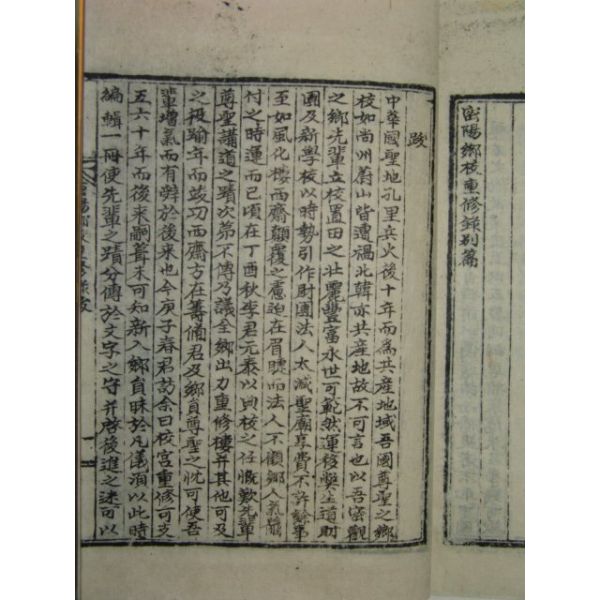 密陽鄉校重修錄別篇
跋
中華國聖地孔里兵火後十年而為共産地域吾國尊聖之鄉
校如尚州蔚山皆遭禍北韓亦共産地故不可言也以吾密觀
之鄉先輩立校置田之壯麗豐富永世可範然運移獎生道財
團及新學校以時勢引作財團法人太減聖廟享費不許餘事
至如風化樓西齋顛覆之慮迫在眉睫而法人不顧鄉人氣
付之時運而已頃在丁酉秋李君元泰以典校之任慨歎先輩
尊聖講道之蹟次第不傳乃議全鄉出力重修樓并其他可及
之役踰年而竣功西齋方在籌備君及鄉員尊聖之忱可使吾
輩增氣而有辭於後來也今庚子春君訪余曰校宮重修可支
五六十年而後來嗣葺未可知新入鄉員昧於凡儀須以此時
編輯一冊使先輩之蹟分傳於文字之守并啓後進之迷可以